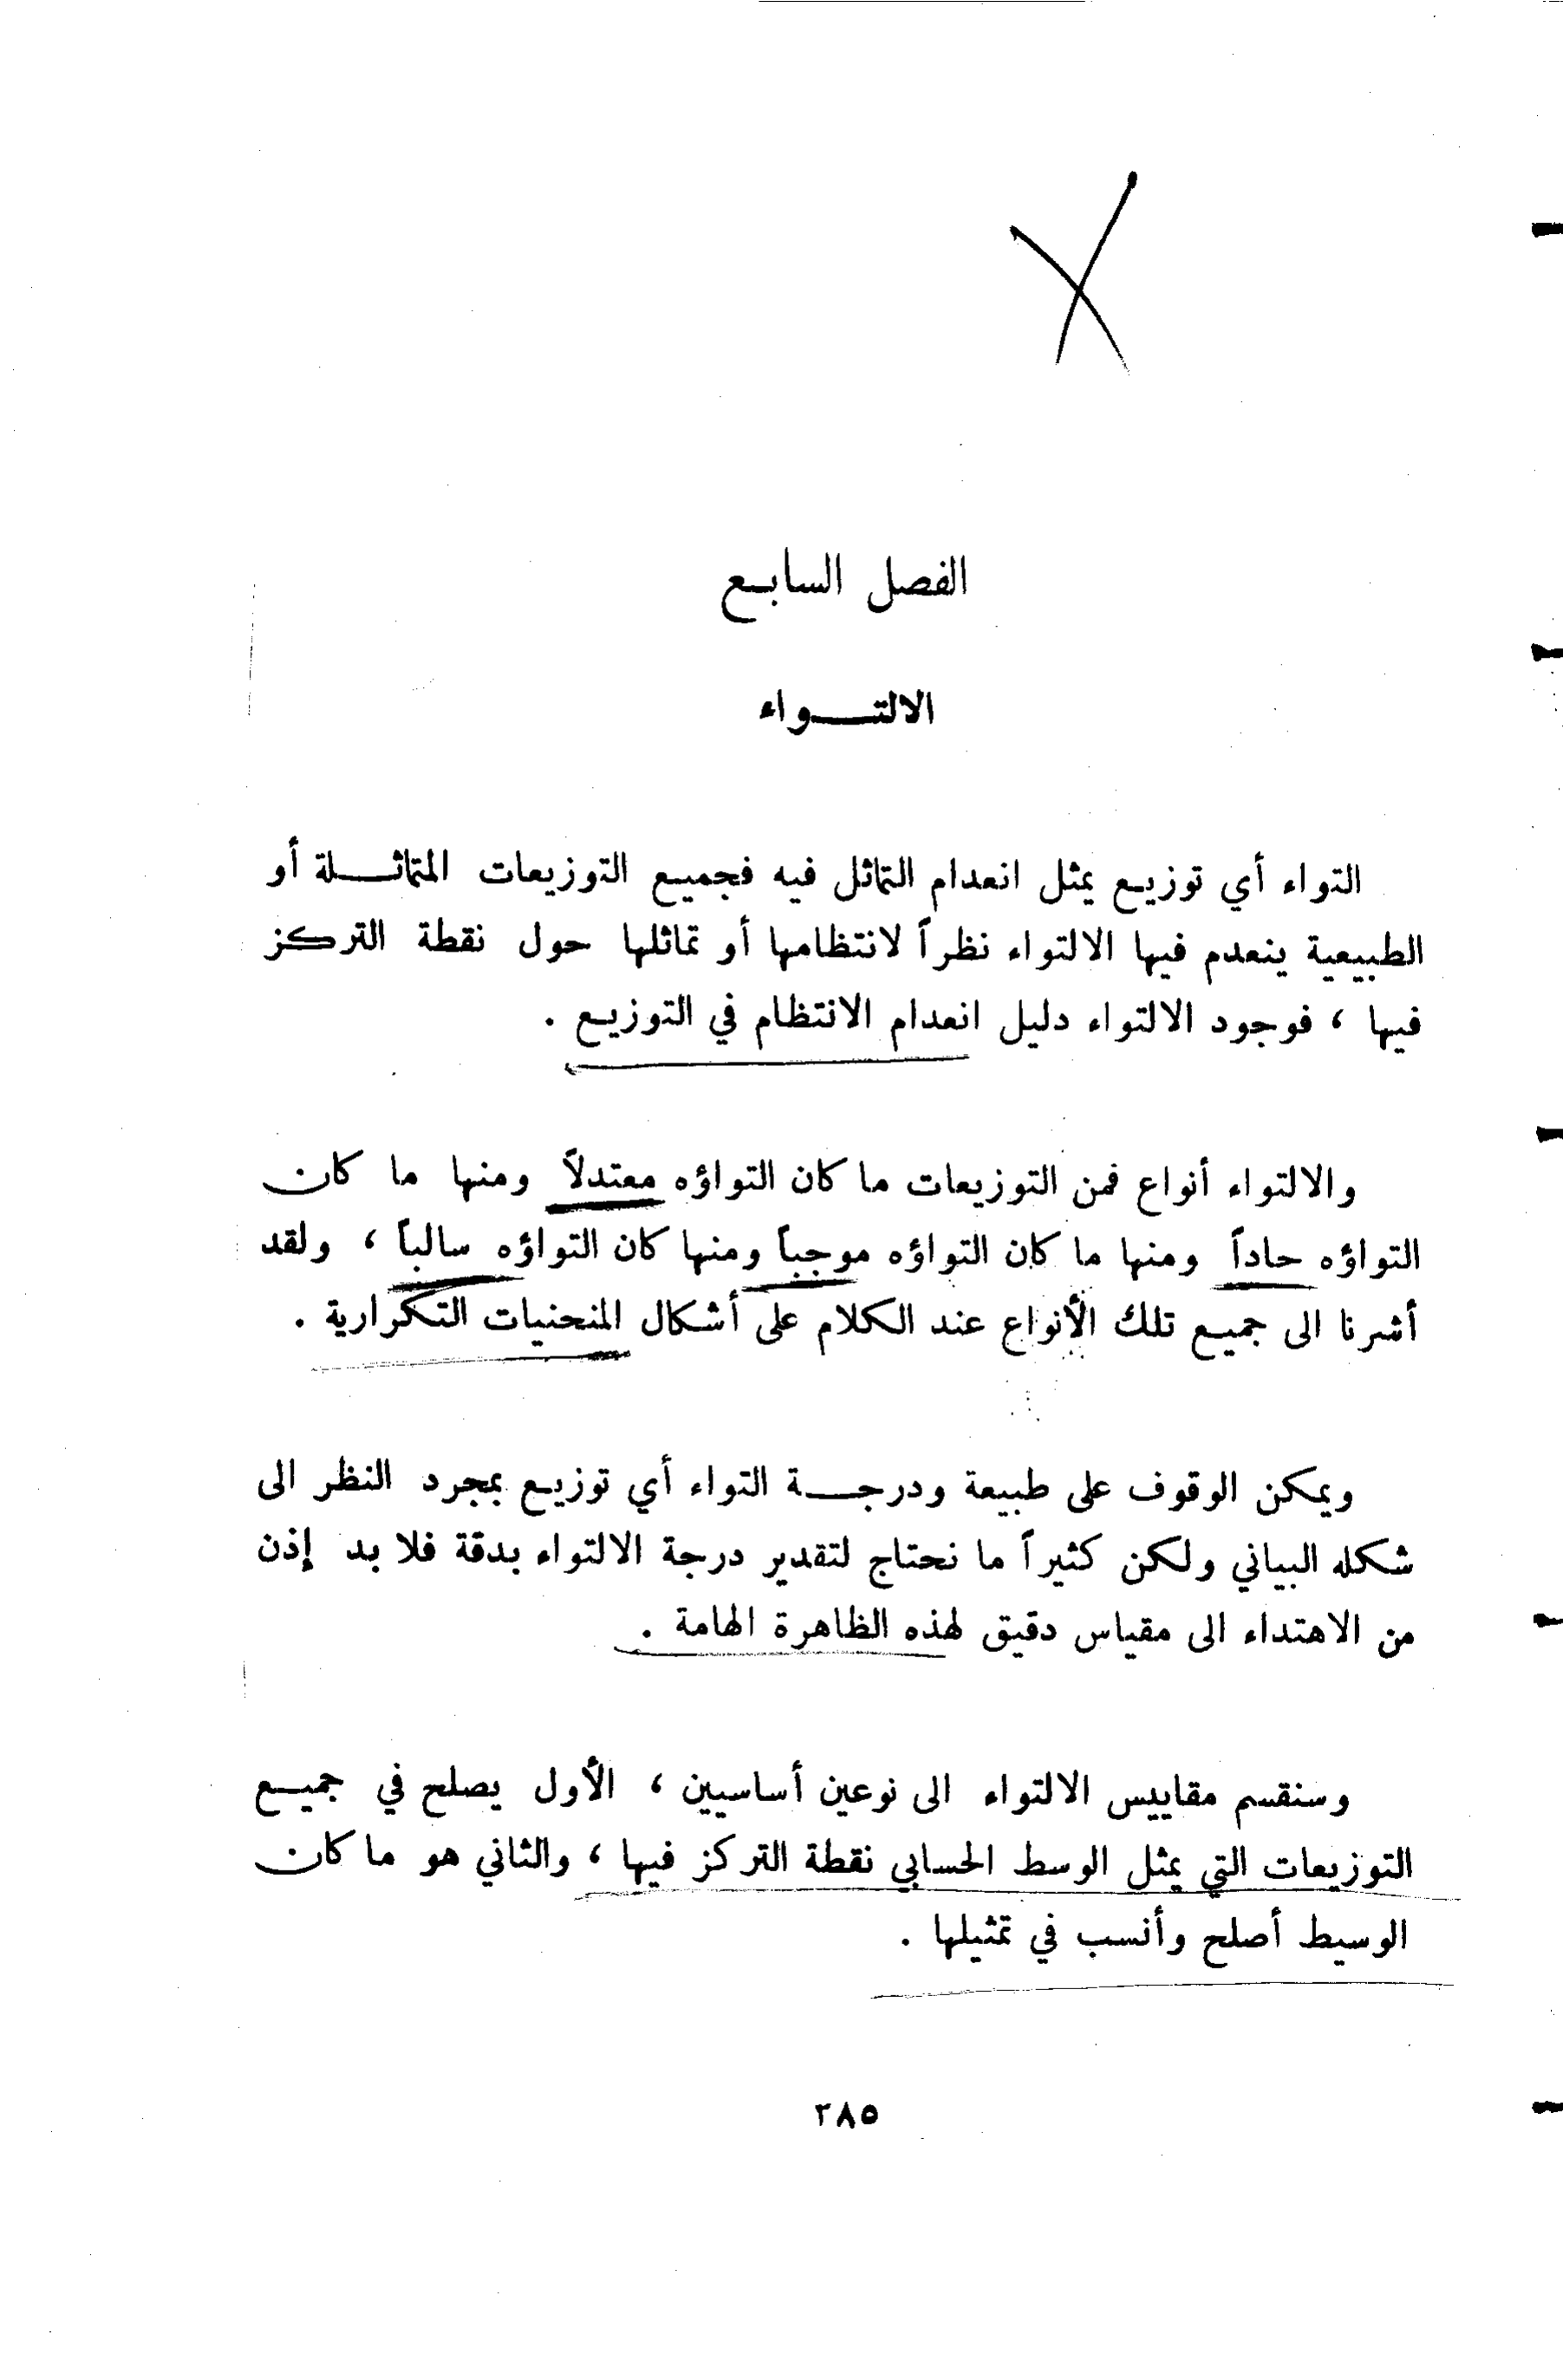 الفصل السابع
الالتواء
التواء أي توزيع يمثل انعدام التماثل فيه فجميع التوزيعات المتماثلة أو
الطبيعية ينعدم فيها الالتواء نظراً لانتظامها أو تماثلها حول نقطة التركز
فيها ، فوجود الالتواء دليل انعدام الانتظام في التوزيع .
والالتواء أنواع فمن التوزيعات ما كان التواؤه معتدلاً ومنها ما كان
التواؤه حاداً ومنها ما كان التواؤه موجباً ومنها كان التواؤه سالباً ، ولقد
أشرنا الى جميع تلك الأنواع عند الكلام على أشكال المنحنيات التكرارية .
ويمكن الوقوف على طبيعة ودرجة التواء أي توزيع بمجرد النظر الى
شكله البياني ولكن كثيراً ما نحتاج لتقدير درجة الالتواء بدقة فلا بد إذن
من الاهتداء الى مقياس دقيق لهذه الظاهرة الهامة .
وسنقسم مقاييس الالتواء الى نوعين أساسيين ، الأول يصلح في جميع
التوزيعات التي يمثل الوسط الحسابي نقطة التركز فيها ، والثاني هو ما كان
الوسيط أصلح وأنسب في تمثيلها .
٢٨٥